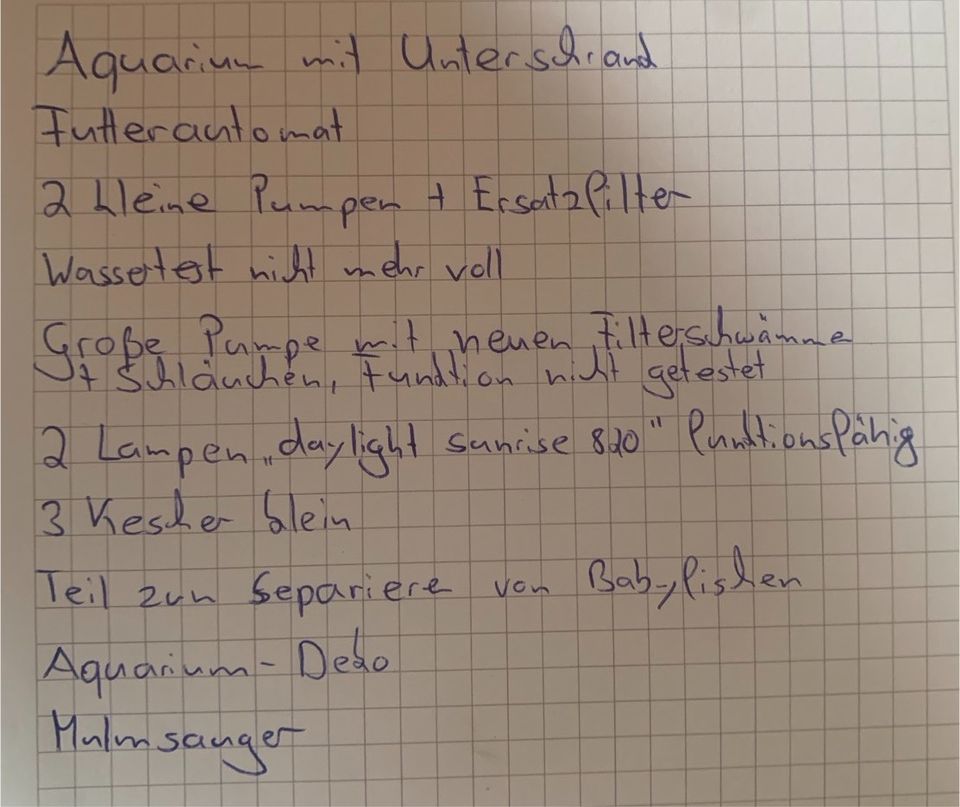 Aquarium mit Unterschrank
Futterautomat
2 kleine Pumpen + Ersatzfilter
Wassertest nicht mehr voll
Große Pumpe mit neuen Filterschwämme
+ Schläuchen, Funktion nicht getestet
2 Lampen „daylight sunrise 820" funktionsfähig
3 Kescher klein
Teil zun Separiere von Babyfischen
Aquarium-Deko
Mulmsauger